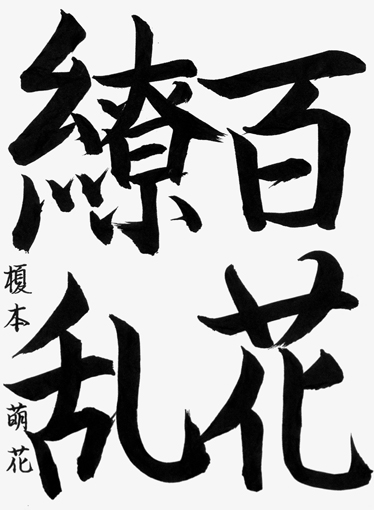 百花
繚乱
榎本萌花